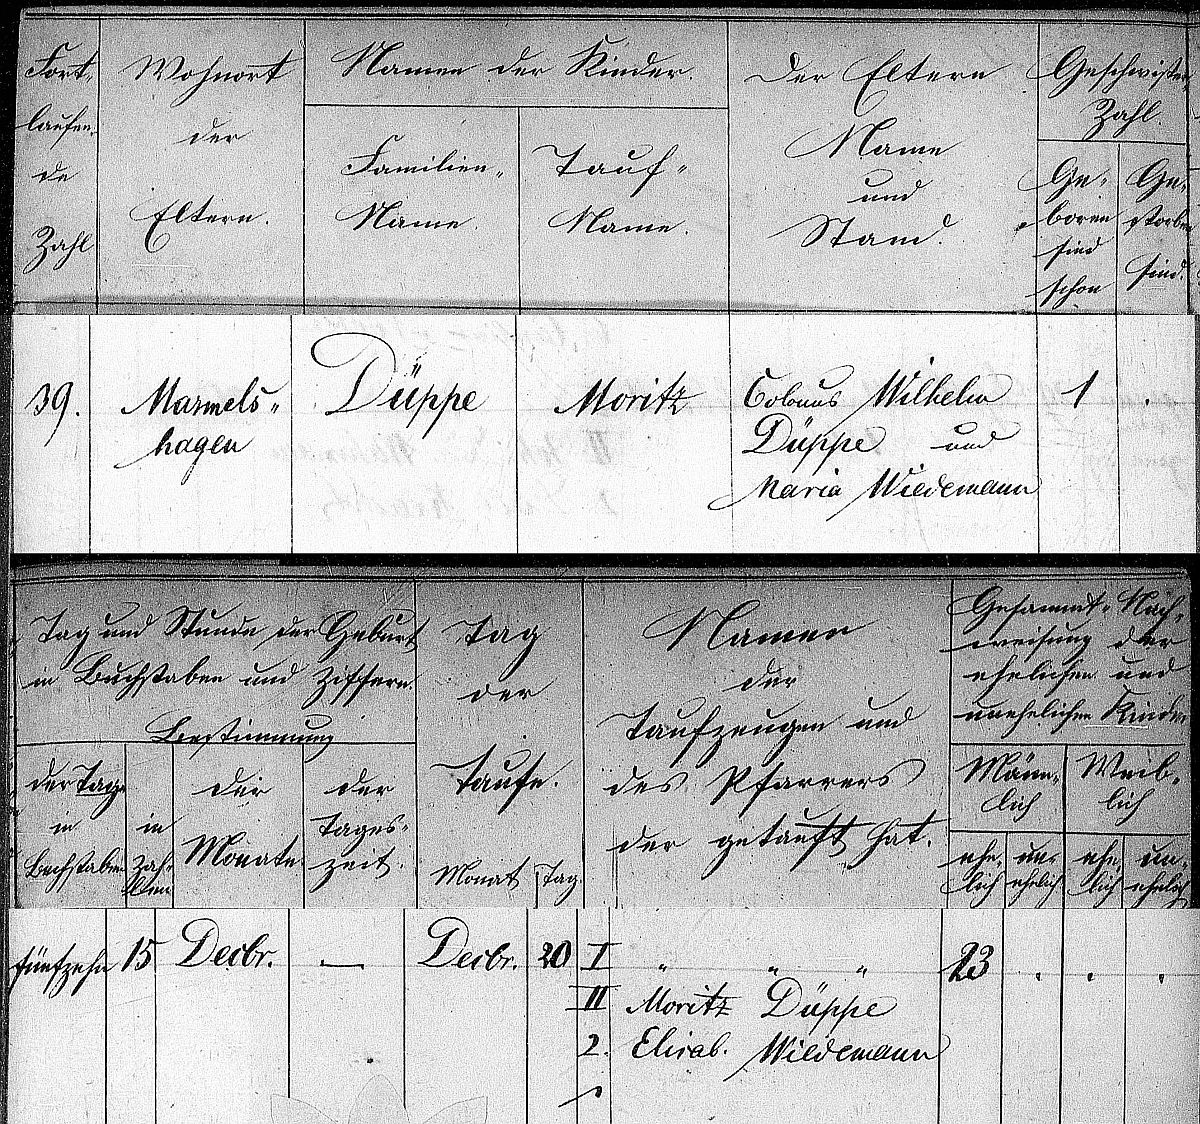 Fort-
laufen-
de
Zahl
Wohnort
der
Eltern.
Namen der Kinder.
Familien-
Name.
Tauf-
Name.
Der Eltern
Name
und
Stand.
Geschwister
Zahl.
Ge-
boren
sind
schon
Ge-
storben
sind.
39.
Marmels-
hagen
Düppe
Moritz
Colonus Wilhelm
Düppe und
Maria Wiedemann
1
.
Tag und Stunde der Geburt
in Buchstaben und Ziffern.
Bestimmung
der Tage
in
Buchstaben
in
Zah-
len
der
Monate
der
Tages-
zeit.
Tag
der
Taufe.
Monat
Tag.
Namen
der
Taufzeugen und
des Pfarrers
der getauft hat.
Gesammt-Nach-
weisung der
ehelichen und
unehelichen Kinder
Männ-
lich
Weib-
lich
ehe-
lich
un-
ehelich
ehe-
lich
un-
ehelich
fünfzehn
15
Decbr.
—
Decbr.
20
I " " "
II Moritz Düppe
2. Elisab. Wiedemann
23
. . .